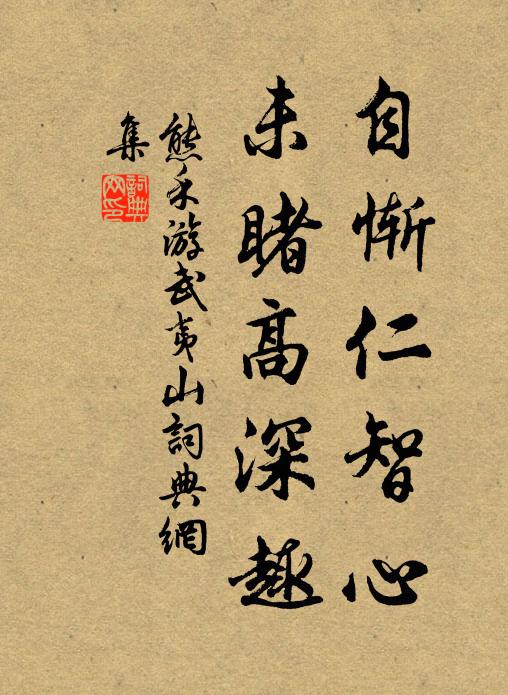 自惭仁智心
未睹高深趣
熊禾游武夷山詞典網
集
詞典
网印